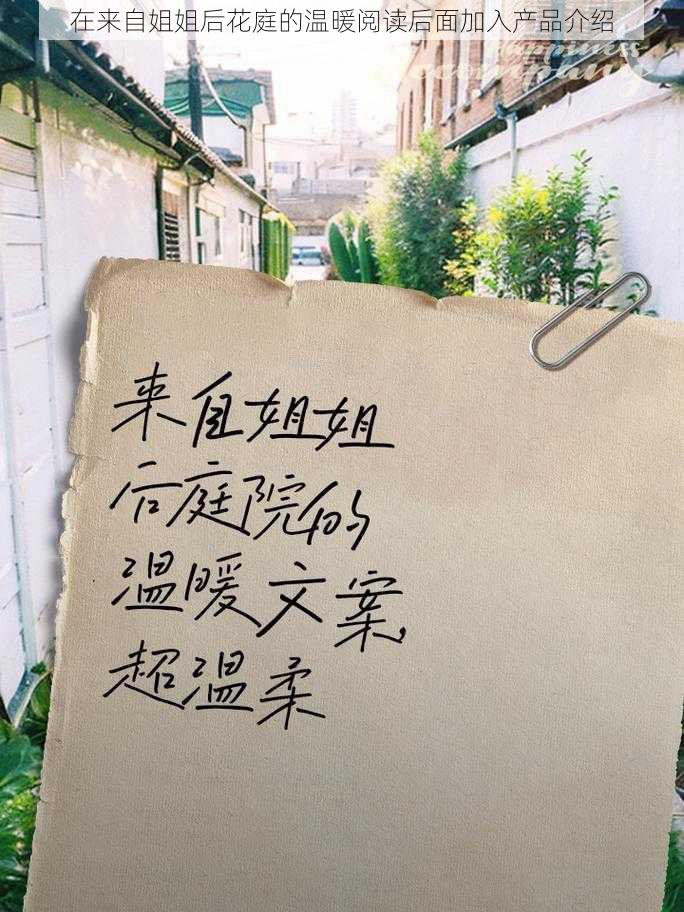 在来自姐姐后花庭的温暖阅读后面加入产品介绍
Happiness
accompany
来自姐姐
后庭院的
温暖文案
超温柔